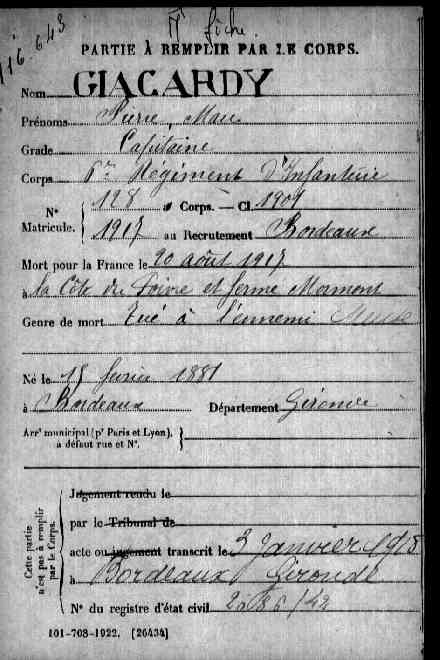 116.643
fiche
PARTIE À REMPLIR PAR LE CORPS.
Nom GIACARDY
Prénoms Pierre, Marc
Grade Capitaine
Corps 6e Régiment d'Infanterie
N° Matricule. 128 au Corps. — Cl. 1901
1917 au Recrutement Bordeaux
Mort pour la France le 20 août 1917
à la Côte du Poivre et ferme Mormont
Genre de mort Tué à l'ennemi Meuse
Né le 15 février 1881
à Bordeaux Département Gironde
Arrt municipal (pr Paris et Lyon), à défaut rue et N°.
Cette partie n'est pas à remplir par le Corps.
Jugement rendu le
par le Tribunal de
acte ou jugement transcrit le 3 Janvier 1918
à Bordeaux Gironde
N° du registre d'état civil
101-708-1922. [26434]